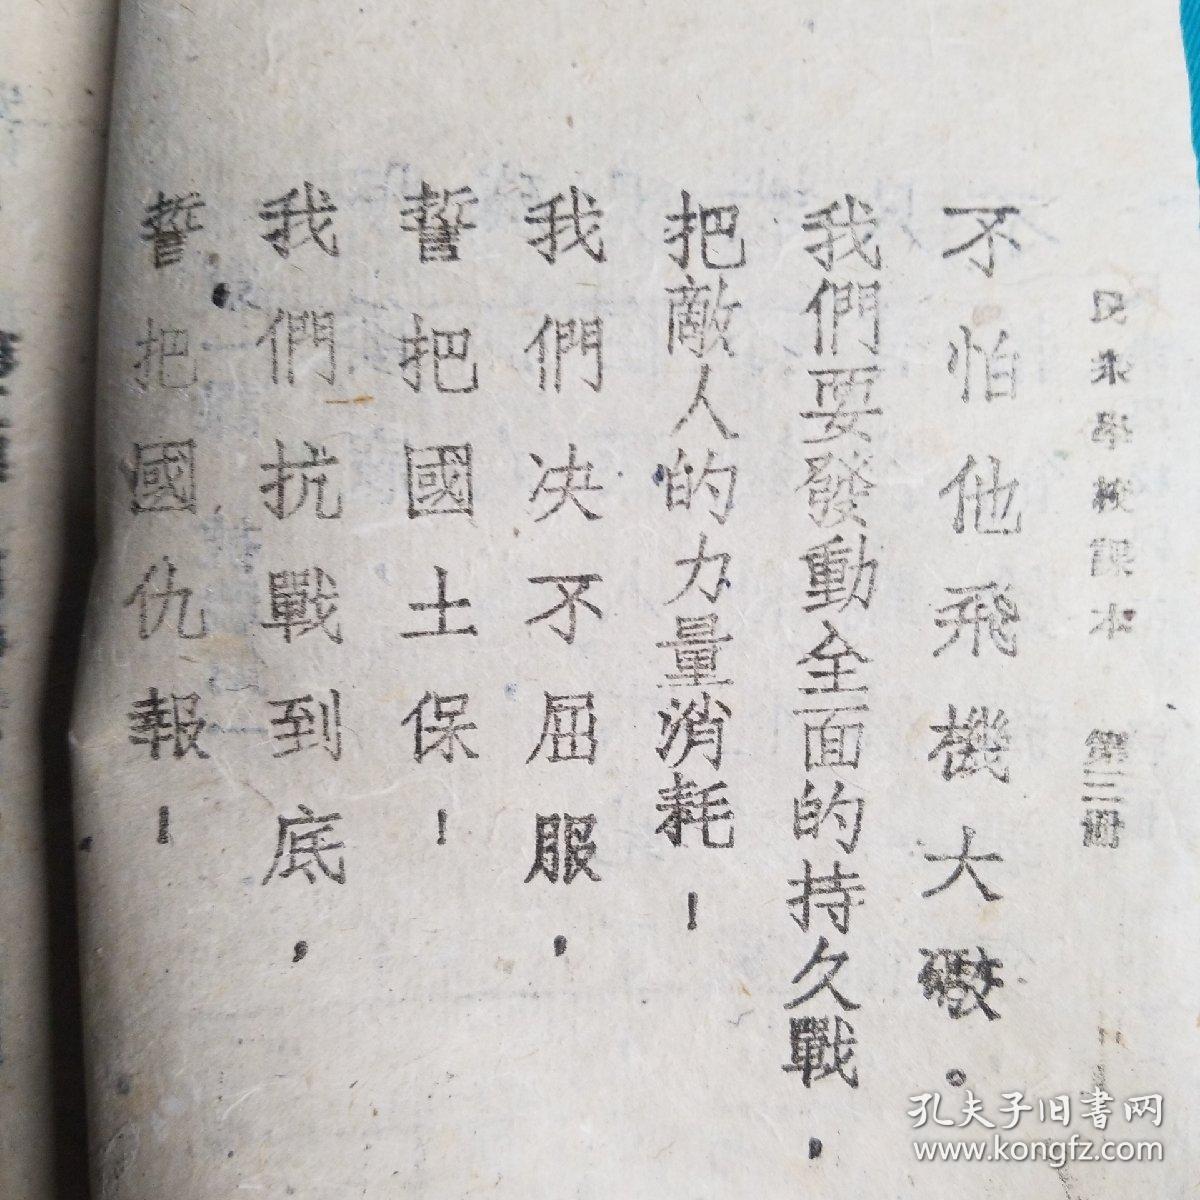 民衆學校課本 第三冊
不怕他飛機大礮。
我們要發動全面的持久戰，
把敵人的力量消耗！
我們决不屈服，
誓把國土保！
我們抗戰到底，
誓把國仇報！
孔夫子旧書网
www.kongfz.com